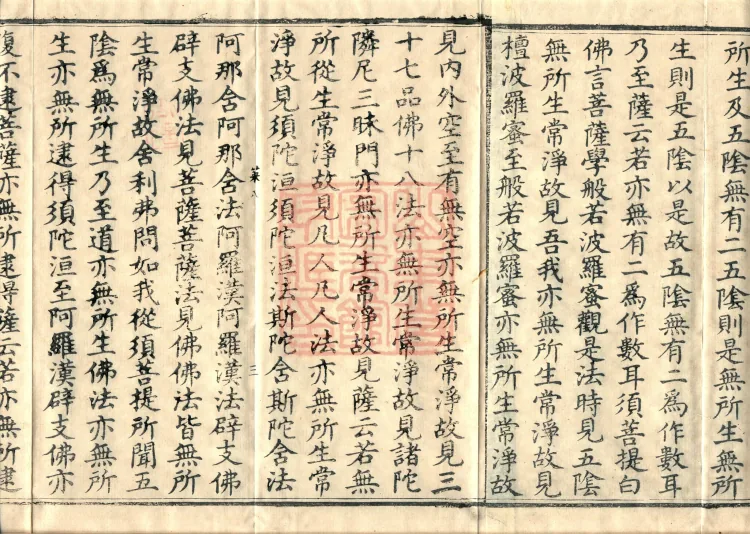 所生及五陰無有二五陰則是無所生無所
生則是五陰以是故五陰無有二為作數耳
乃至薩云若亦無有二為作數耳須菩提白
佛言菩薩學般若波羅蜜觀是法時見五陰
無所生常淨故見吾我亦無所生常淨故見
檀波羅蜜至般若波羅蜜亦無所生常淨故
見內外空至有無空亦無所生常淨故見三
十七品佛十八法亦無所生常淨故見諸陀
隣尼三昧門亦無所生常淨故見薩云若無
所從生常淨故見凡人凡人法亦無所生常
淨故見須陀洹須陀洹法斯陀含斯陀含法
菜八
三
阿那含阿那含法阿羅漢阿羅漢法辟支佛
辟支佛法見菩薩菩薩法見佛佛法皆無所
生常淨故舍利弗問如我從須菩提所聞五
陰為無所生乃至道亦無所生佛法亦無所
生亦無所逮得須陀洹至阿羅漢辟支佛亦
復不逮菩薩亦無所逮得薩云若亦無所逮